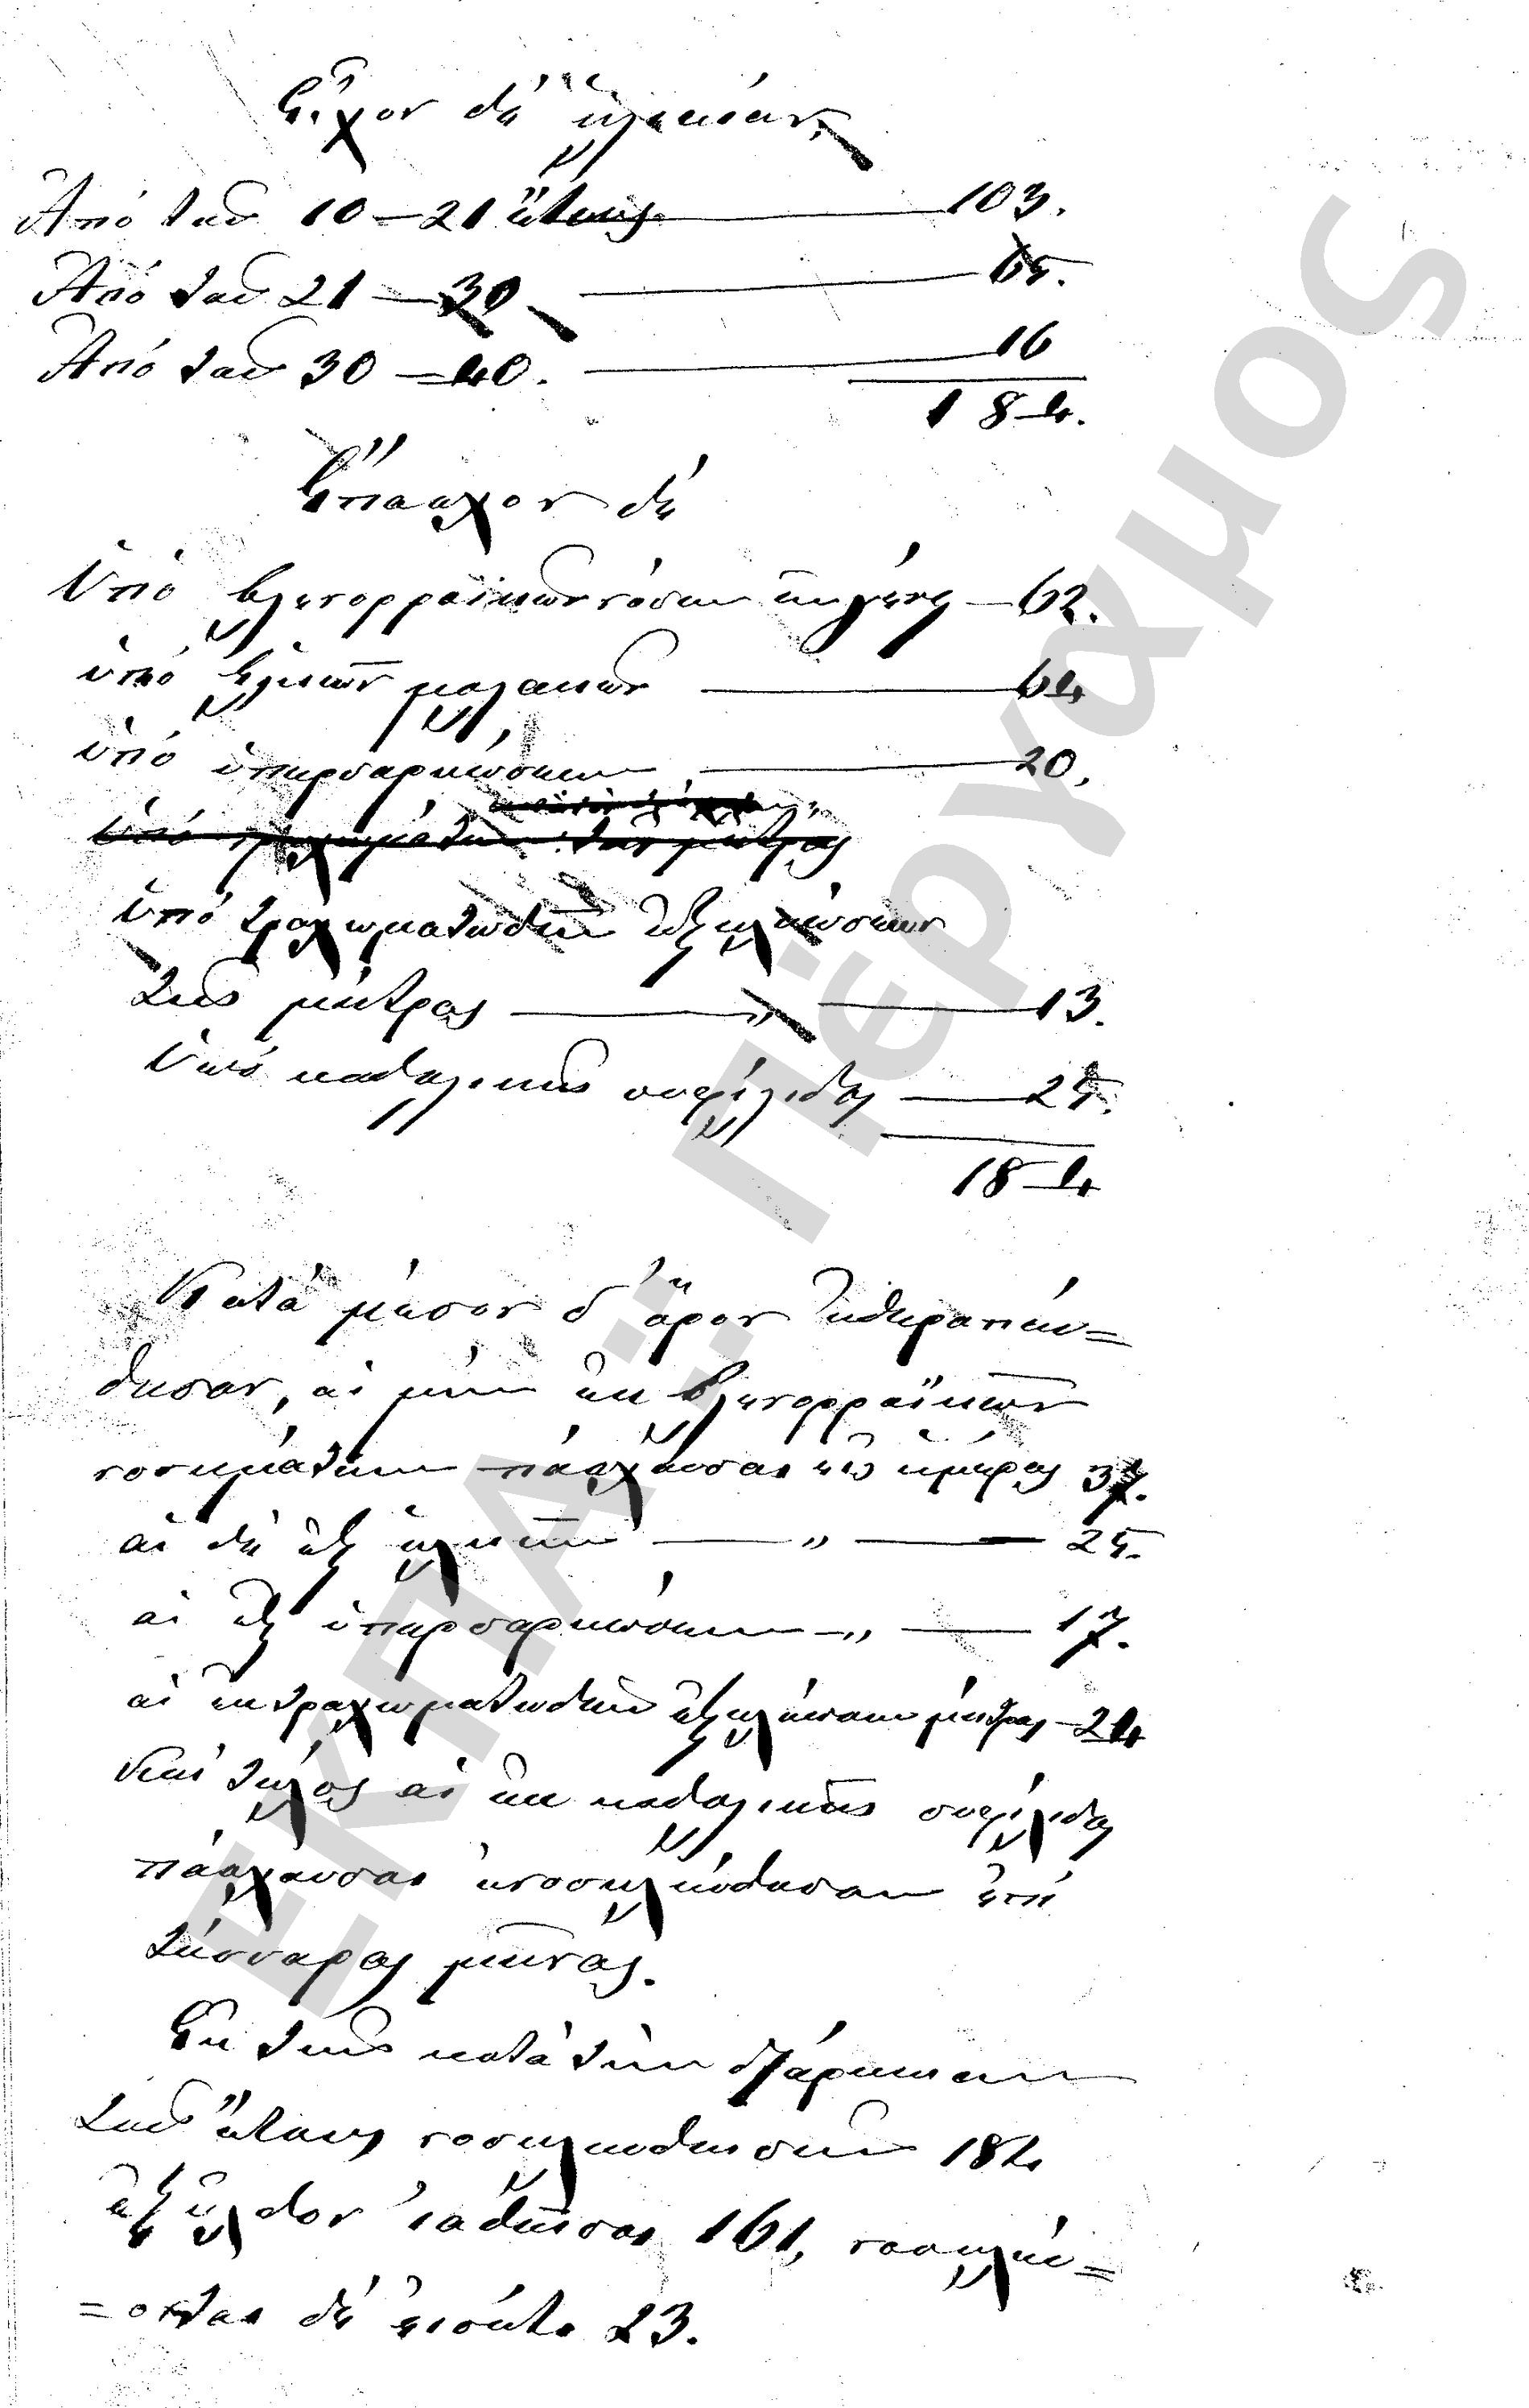 Εἶχον δὲ ἡλικίαν,
Ἀπὸ τοῦ 10 — 21 ἔτους — 103.
Ἀπὸ τοῦ 21 — 30 — 65.
Ἀπὸ τοῦ 30 — 40. — 16
184.
Ἔπασχον δὲ
Ὑπὸ βλεννορροϊκῶν νόσων ἐν γένει — 62.
ὑπὸ ἑλκῶν μαλακῶν — 64
ὑπὸ ὑπερσαρκώσεων — 20.
Ὑπὸ τραχωμάτων τῆς μήτρας
ὑπὸ τραχωματωδῶν ἐξελκώσεων
τῆς μήτρας — „ — 13.
Ὑπὸ καθολικῆς συφίλιδος — 25.
184
Κατὰ μέσον δ' ὅρον ἐθεραπεύ=
θησαν, αἱ μὲν ἐκ βλεννορροϊκῶν
νοσημάτων πάσχουσαι εἰς ἡμέρας 37.
αἱ δὲ ἐξ ἑλκῶν — „ — 25.
αἱ ἐξ ὑπερσαρκώσεων — „ — 17.
αἱ ἐκ τραχωματωδῶν ἐξελκώσεων μήτρας — 24
καὶ τέλος αἱ ἐκ καθολικῆς συφίλιδος
πάσχουσαι ἐνοσηλεύθησαν ἐπὶ
τέσσαρας μῆνας.
Ἐκ τῶν κατὰ τὴν διάρκειαν
τοῦ ἔτους νοσηλευθεισῶν 184
ἐξῆλθον ἰαθεῖσαι 161, νοσηλεύ=
=ονται δὲ εἰσέτι 23.
ΕΚΠΑ... Πέργαμος